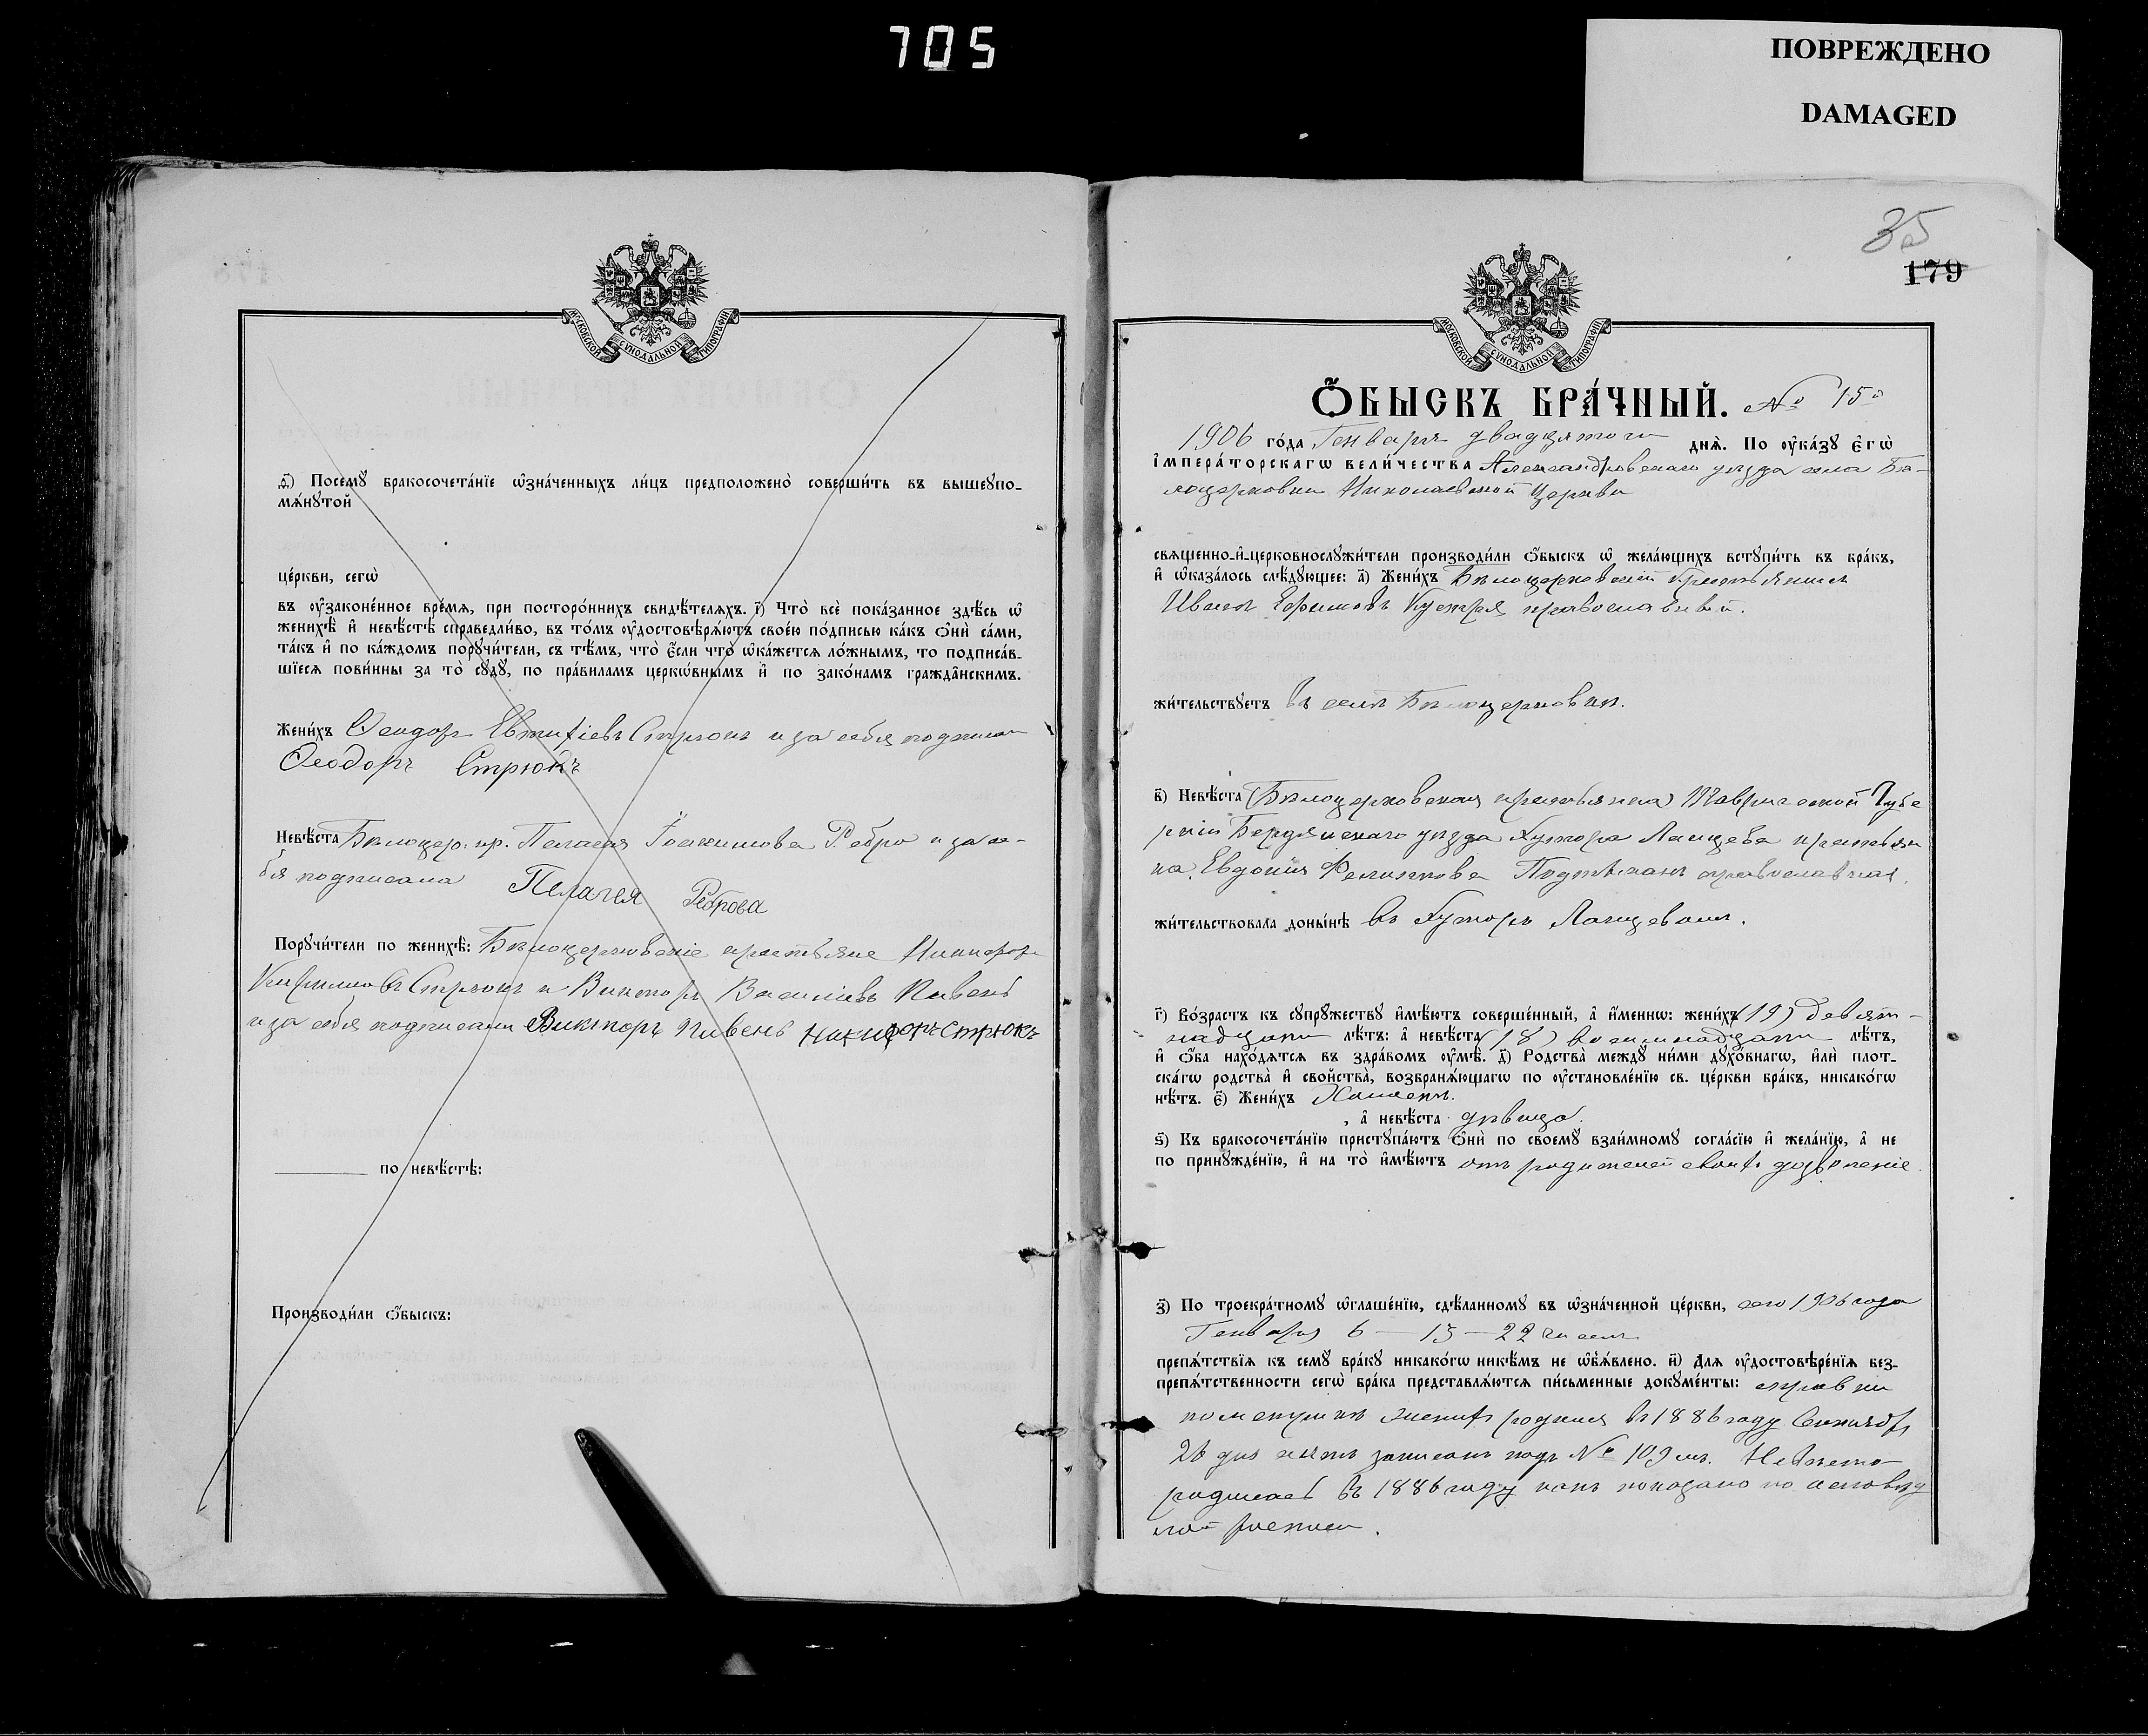 705
ПОВРЕЖДЕНО
DAMAGED
МОСКОВСКОЙ СѴНОДАЛЬНОЙ ТИПОГРАФІИ
ѳ҃) Посемꙋ̀ бракосочета́нїе ѡ҆зна́ченныхъ ли́цъ предположено̀ соверши́ть въ вышеꙋпо-
мѧ́нꙋтой
це́ркви, сегѡ̀
въ ᲂу҆законе́нное вре́мѧ, при посторо́ннихъ свидѣ́телѧхъ. і҃) Что̀ всѐ пока́занное здѣ́сь ѡ҆
женихѣ̀ и҆ невѣ́стѣ справедли́во, въ то́мъ ᲂу҆достовѣрѧ́ютъ свое́ю по́дписью ка́къ ѻ҆нѝ са́ми,
та́къ и҆ по ка́ждомъ порꙋчи́тели, съ тѣ́мъ, что̀ є҆́сли что̀ ѡ҆ка́жетсѧ ло́жнымъ, то подписа́в-
шїесѧ пови́нны за то̀ сꙋдꙋ̀, по пра́виламъ церкѡ́внымъ и҆ по зако́намъ гражда̑нскимъ.
Жени́хъ Ѳеодоръ Евтихіевъ Стрюкъ и за себя подписал
Ѳеодоръ Стрюкъ
Невѣ́ста Бѣлоцер. кр. Пелагея Іоакимова Ребро и за се-
бя подписала Пелагея Реброва
Порꙋчи́тели по женихѣ̀: Бѣлоцерковскіе крестьяне Никифоръ
Кириловъ Стрюкъ и Викторъ Васильевъ Пивень
и за себя подписали Викторъ Пивень Никифоръ Стрюкъ
по невѣ́стѣ:
Производи́ли ѻ҆́быскъ:
35
179
МОСКОВСКОЙ СѴНОДАЛЬНОЙ ТИПОГРАФІИ
Ѻ҆́БЫСКЪ БРА́ЧНЫЙ. № 15й
1906 го́да Генваря двадцятого днѧ̀. По ᲂу҆ка́зꙋ є҆гѡ̀
і҆мпера́торскагѡ вели́чества Александровскаго уѣзда села Бѣ-
лоцерковки Николаевской Церкви
свѧще́нно-и҆-церковнослꙋжи́тели производи́ли ѻ҆́быскъ ѡ҆ жела́ющихъ встꙋпи́ть въ бра́къ,
и҆ ѡ҆каза́лось слѣ́дꙋющее: а҃) Жени́хъ Бѣлоцерковскій крестьянинъ
Иванъ Ефимовъ православный.
жи́тельствꙋетъ въ селѣ Бѣлоцерковки.
в҃) Невѣ́ста (Бѣлоцерковская крестьянка) Таврической Губе
рніи Бердянскаго уѣзда Хутора Ланцева крестьян
ка, Евдокія Филиппова православная.
жи́тельствовала доны́нѣ въ Хуторѣ Ланцевомъ.
г҃) Во́зрастъ къ сꙋпрꙋ́жествꙋ и҆мѣ́ютъ соверше́нный, а҆ и҆́меннѡ: жени́хъ (19) девят-
надцати лѣ́тъ: а҆ невѣ́ста (18) восемнадцати лѣ́тъ,
и҆ ѻ҆́ба нахо́дѧтсѧ въ здра́вомъ ᲂу҆мѣ̀. д҃) Родства̀ междꙋ̀ ни́ми дꙋхо́внагѡ, и҆лѝ плот-
ска́гѡ родства̀ и҆ сво́йства̀, возбранѧ́ющагѡ по ᲂу҆становле́нїю св. це́ркви бра́къ, никако́гѡ
нѣ́тъ. є҃) Жени́хъ Холостъ.
, а҆ невѣ́ста дѣвица.
ѕ҃) Къ бракосочета́нїю пристꙋпа́ютъ ѻ҆нѝ по своемꙋ̀ взаи́мномꙋ согла́сїю и҆ жела́нїю, а҆ не
по принꙋжде́нїю, и҆ на то̀ и҆мѣ́ютъ отъ родителей своихъ дозволеніе.
з҃) По троекра́тномꙋ ѡ҆глаше́нїю, сдѣ́ланномꙋ въ ѡ҆зна́ченной це́ркви, сего 1906 года
Генваря 6 – 15 – 22 чиселъ
препѧ́тствїѧ къ семꙋ̀ бра́кꙋ никако́гѡ никѣ́мъ не ѡ҆б̾ѧ́влено. и҃) Длѧ ᲂу҆достовѣре́нїѧ без-
препѧ́тственности сегѡ̀ бра́ка представлѧ́ютсѧ пи́сьменные докꙋме́нты: справки
по метрикѣ женихъ родился въ 1886 году Сентября
26 дня актъ записанъ подъ № 109 мъ. Невѣста
родилась въ 1886 году какъ показано по исповѣд
ной росписи.